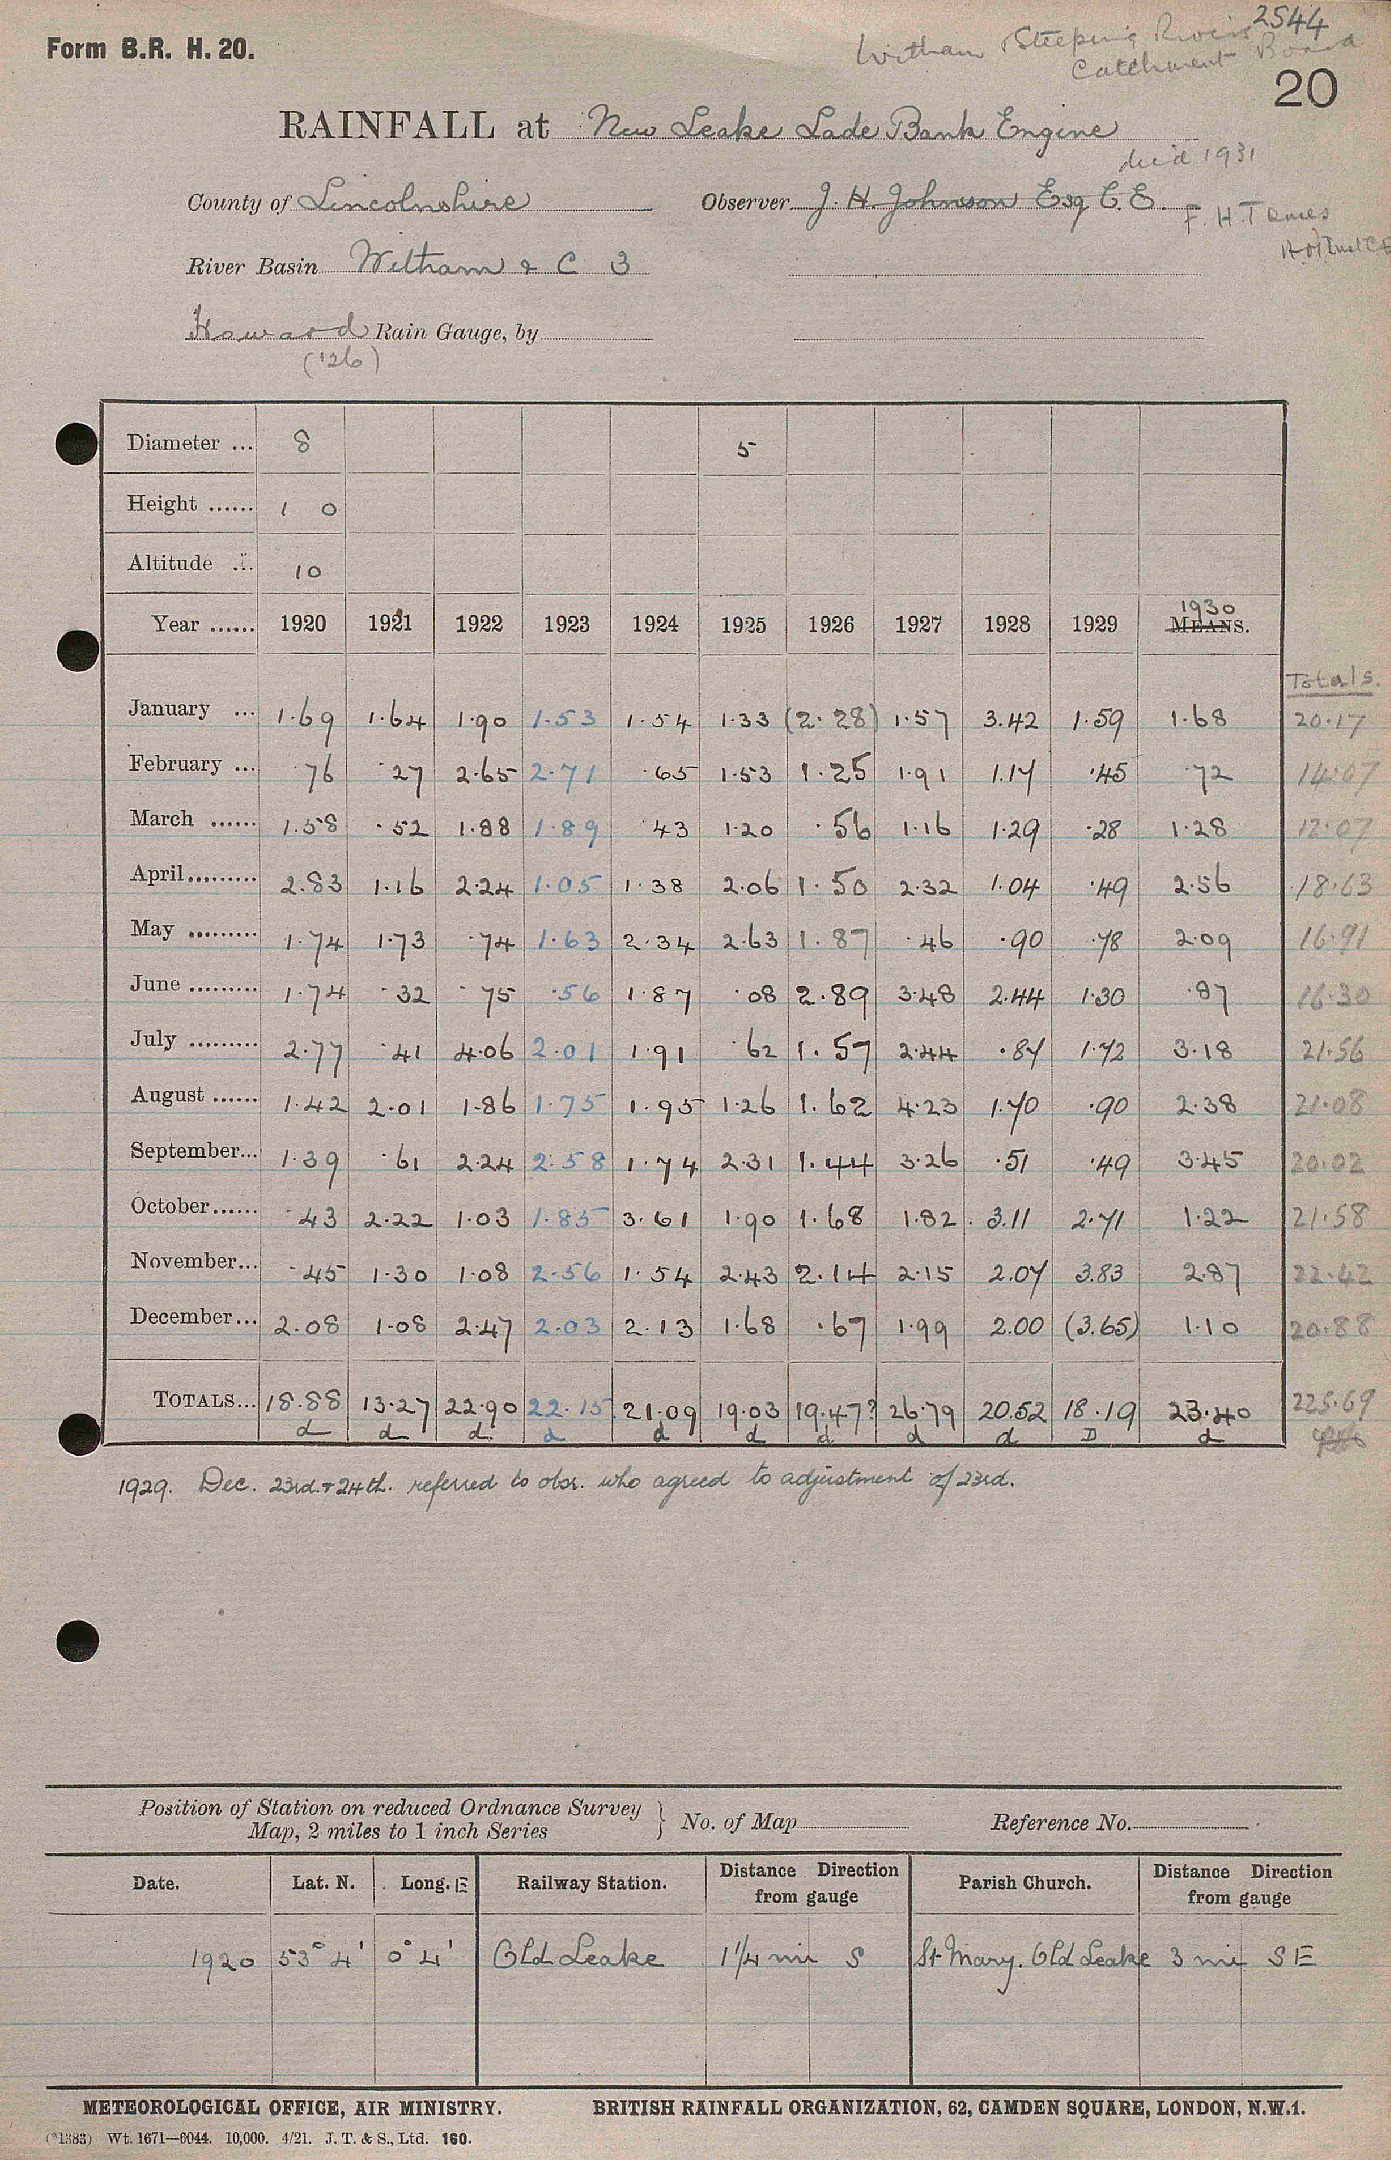 Form B.R. H. 20.
Witham & Steeping Rivers 2544
Catchment Board
20
RAINFALL at New Leake Lade Bank Engine
died 1931
County of Lincolnshire Observer J. H. Johnson Esq C.E.
F. H. T
River Basin Witham & C 3
Howard Rain Gauge, by
('26)
Diameter ... 8 5
Height ...... 1 0
Altitude ... 10
Year ...... 1920 1921 1922 1923 1924 1925 1926 1927 1928 1929 1930 MEANS.
Totals.
January ... 1.69 1.64 1.90 1.53 1.54 1.33 (2.28) 1.57 3.42 1.59 1.68 20.17
February ... .76 .27 2.65 2.71 .65 1.53 1.25 1.91 1.17 .45 .72 14.07
March ...... 1.58 .52 1.88 1.89 .43 1.20 .56 1.16 1.29 .28 1.28 12.07
April......... 2.83 1.16 2.24 1.05 1.38 2.06 1.50 2.32 1.04 .49 2.56 18.63
May ......... 1.74 1.73 .74 1.63 2.34 2.63 1.87 .46 .90 .78 2.09 16.91
June ......... 1.74 .32 .75 .56 1.87 .08 2.89 3.48 2.44 1.30 .87 16.30
July ......... 2.77 .41 4.06 2.01 1.91 .62 1.57 2.44 .87 1.72 3.18 21.56
August ...... 1.42 2.01 1.86 1.75 1.95 1.26 1.62 4.23 1.70 .90 2.38 21.08
September... 1.39 .61 2.24 2.58 1.74 2.31 1.44 3.26 .51 .49 3.45 20.02
October...... .43 2.22 1.03 1.85 3.61 1.90 1.68 1.82 3.11 2.71 1.22 21.58
November... .45 1.30 1.08 2.56 1.54 2.43 2.14 2.15 2.07 3.83 2.87 22.42
December... 2.08 1.08 2.47 2.03 2.13 1.68 .67 1.99 2.00 (3.65) 1.10 20.88
TOTALS... 18.88 13.27 22.90 22.15 21.09 19.03 19.47? 26.79 20.52 18.19 23.40 225.69
d d d. d d d d d d D d
1929. Dec. 23rd. + 24th. referred to obsr. who agreed to adjustment of 23rd.
Position of Station on reduced Ordnance Survey
Map, 2 miles to 1 inch Series } No. of Map Reference No.
Date. Lat. N. Long. E Railway Station. Distance Direction from gauge Parish Church. Distance Direction from gauge
1920 53° 4' 0° 4' Old Leake 1 1/4 mi S St Mary. Old Leake 3 mi SE
METEOROLOGICAL OFFICE, AIR MINISTRY. BRITISH RAINFALL ORGANIZATION, 62, CAMDEN SQUARE, LONDON, N.W.1.
(*1383) Wt. 1671—6044. 10,000. 4/21. J. T. & S., Ltd. 160.